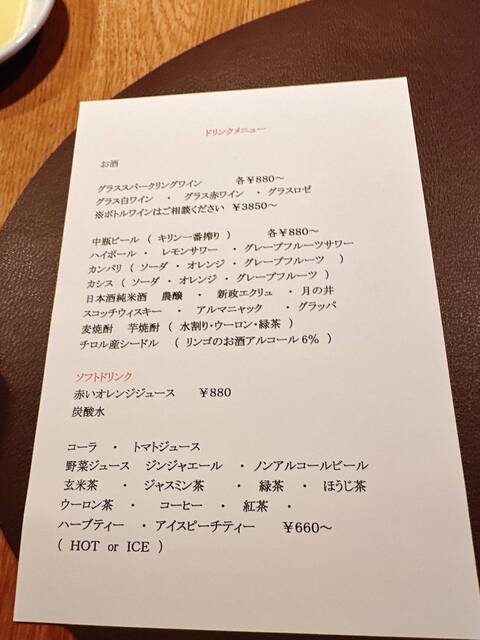 ドリンクメニュー
お酒
グラススパークリングワイン 各￥880～
グラス白ワイン ・ グラス赤ワイン ・ グラスロゼ
※ボトルワインはご相談ください ￥3850～
中瓶ビール ( キリン一番搾り ) 各￥880～
ハイボール ・ レモンサワー ・ グレープフルーツサワー
カンパリ ( ソーダ ・ オレンジ ・ グレープフルーツ )
カシス ( ソーダ ・ オレンジ ・ グレープフルーツ )
日本酒純米酒 農醸 ・ 新政エクリュ ・ 月の井
スコッチウィスキー ・ アルマニャック ・ グラッパ
麦焼酎 芋焼酎 ( 水割り・ウーロン・緑茶 )
チロル産シードル ( リンゴのお酒アルコール6% )
ソフトドリンク
赤いオレンジジュース ￥880
炭酸水
コーラ ・ トマトジュース
野菜ジュース ジンジャエール ・ノンアルコールビール
玄米茶 ・ ジャスミン茶 ・ 緑茶 ・ ほうじ茶
ウーロン茶 ・ コーヒー ・ 紅茶 ・
ハーブティー ・ アイスピーチティー ￥660～
( HOT or ICE )